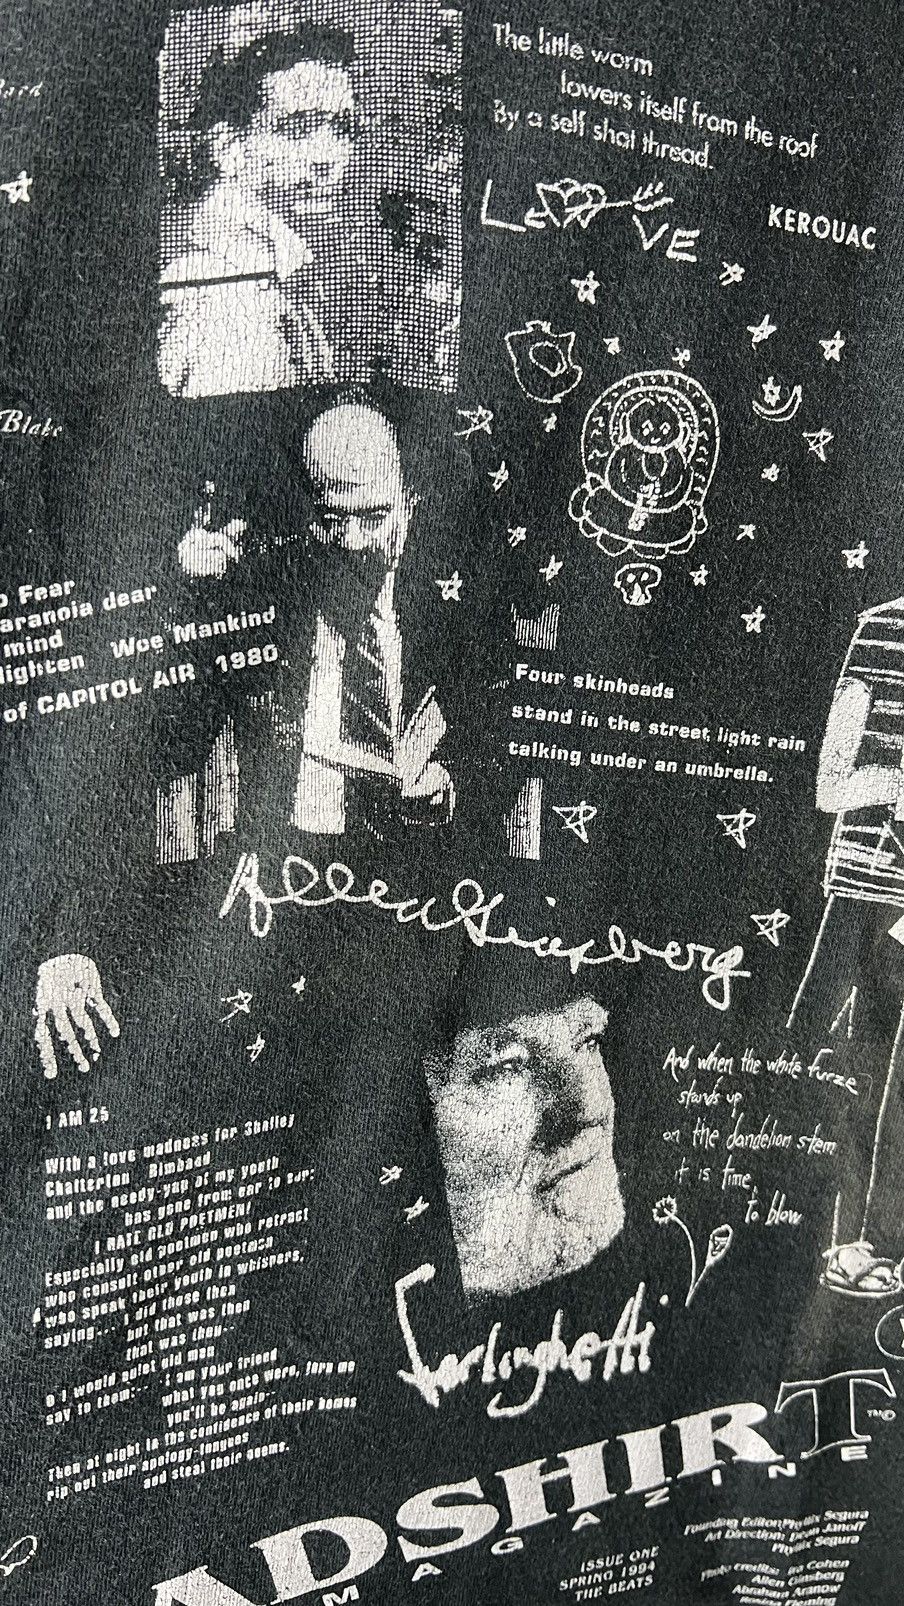 The little worm
lowers itself from the roof
By a self shot thread.
LOVE
KEROUAC
Blake
Fear
paranoia dear
mind
Woe Mankind
of CAPITOL AIR 1980
Four skinheads
stand in the street light rain
talking under an umbrella.
Allen Ginsberg
And when the white furze
stands up
on the dandelion stem
it is time
to blow
I AM 25
With a love madness for Shelley
Chatterton Rimbaud
and the needy-yap of my youth
has gone from ear to ear:
I HATE OLD POETMEN!
Especially old poetmen who retract
who consult other old poetmen
who speak their youth in whispers,
saying:-- I did those then
but that was then
that was then--
O I would quiet old men
say to them:-- I am your friend
what you once were, thru me
you'll be again--
Then at night in the confidence of their homes
rip out their apology-tongues
and steal their poems.
Ferlinghetti
ADSHIRT
MAGAZINE
ISSUE ONE
SPRING 1994
THE BEATS
Founding Editor: Phyllis Segura
Art Direction: Dean Janoff
Phyllis Segura
Photo Credits: Ira Cohen
Allen Ginsberg
Abraham Aranow
Fleming